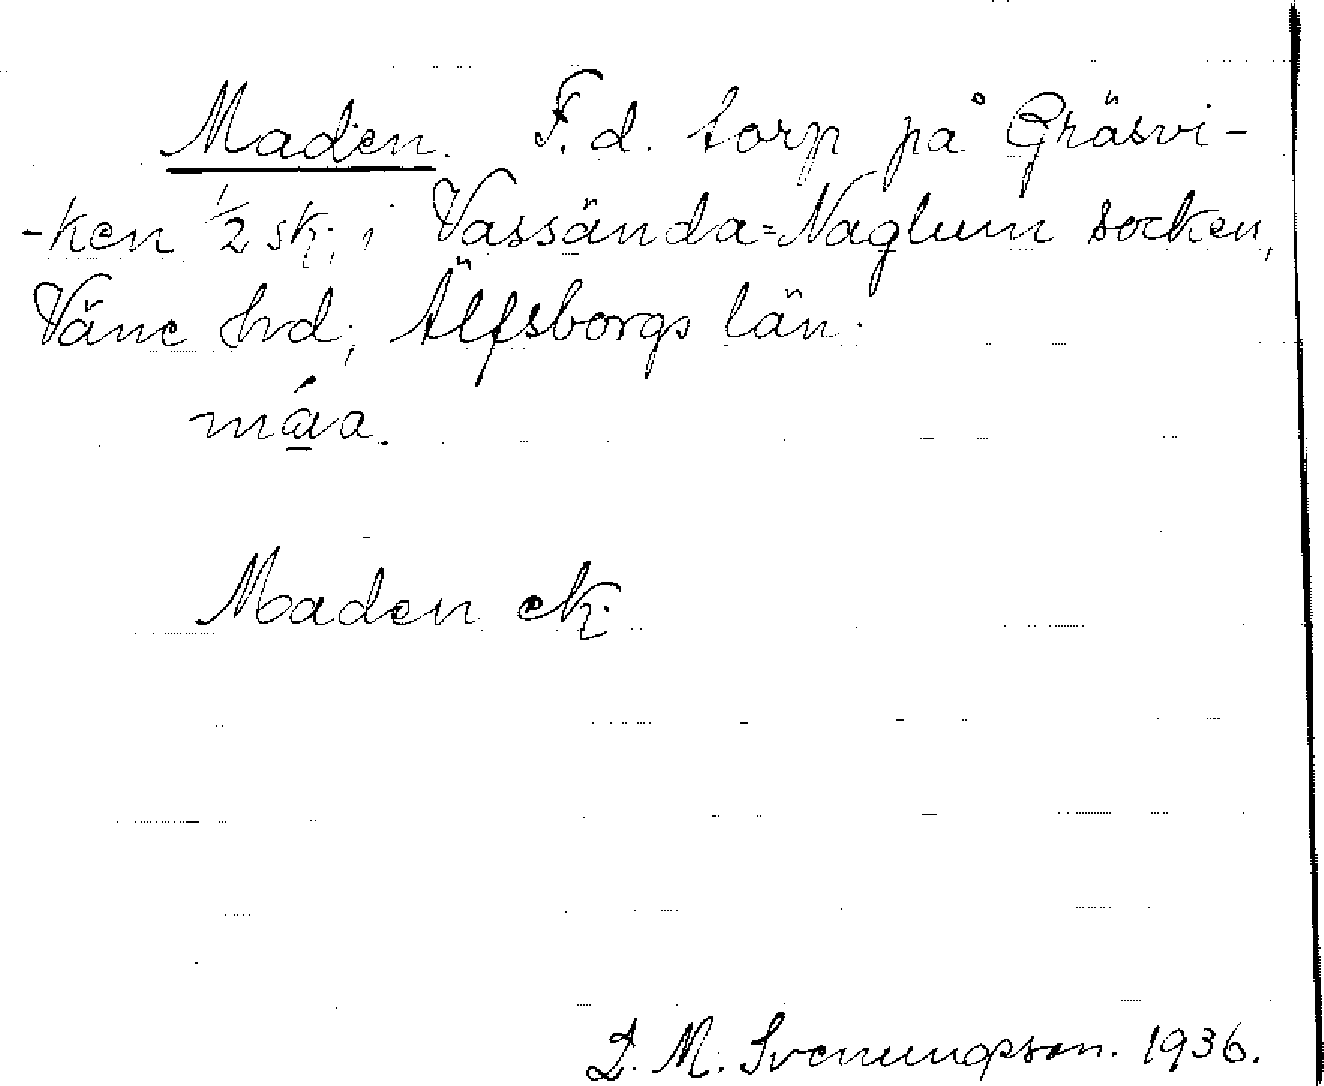 Maden. F.d. torp på Gräsvi-
-ken 1/2 sk. i Vassända=Naglum socken,
Väne hrd, Älfsborgs län.
máa.
Maden ek.
D. M. Svenungsson. 1936.